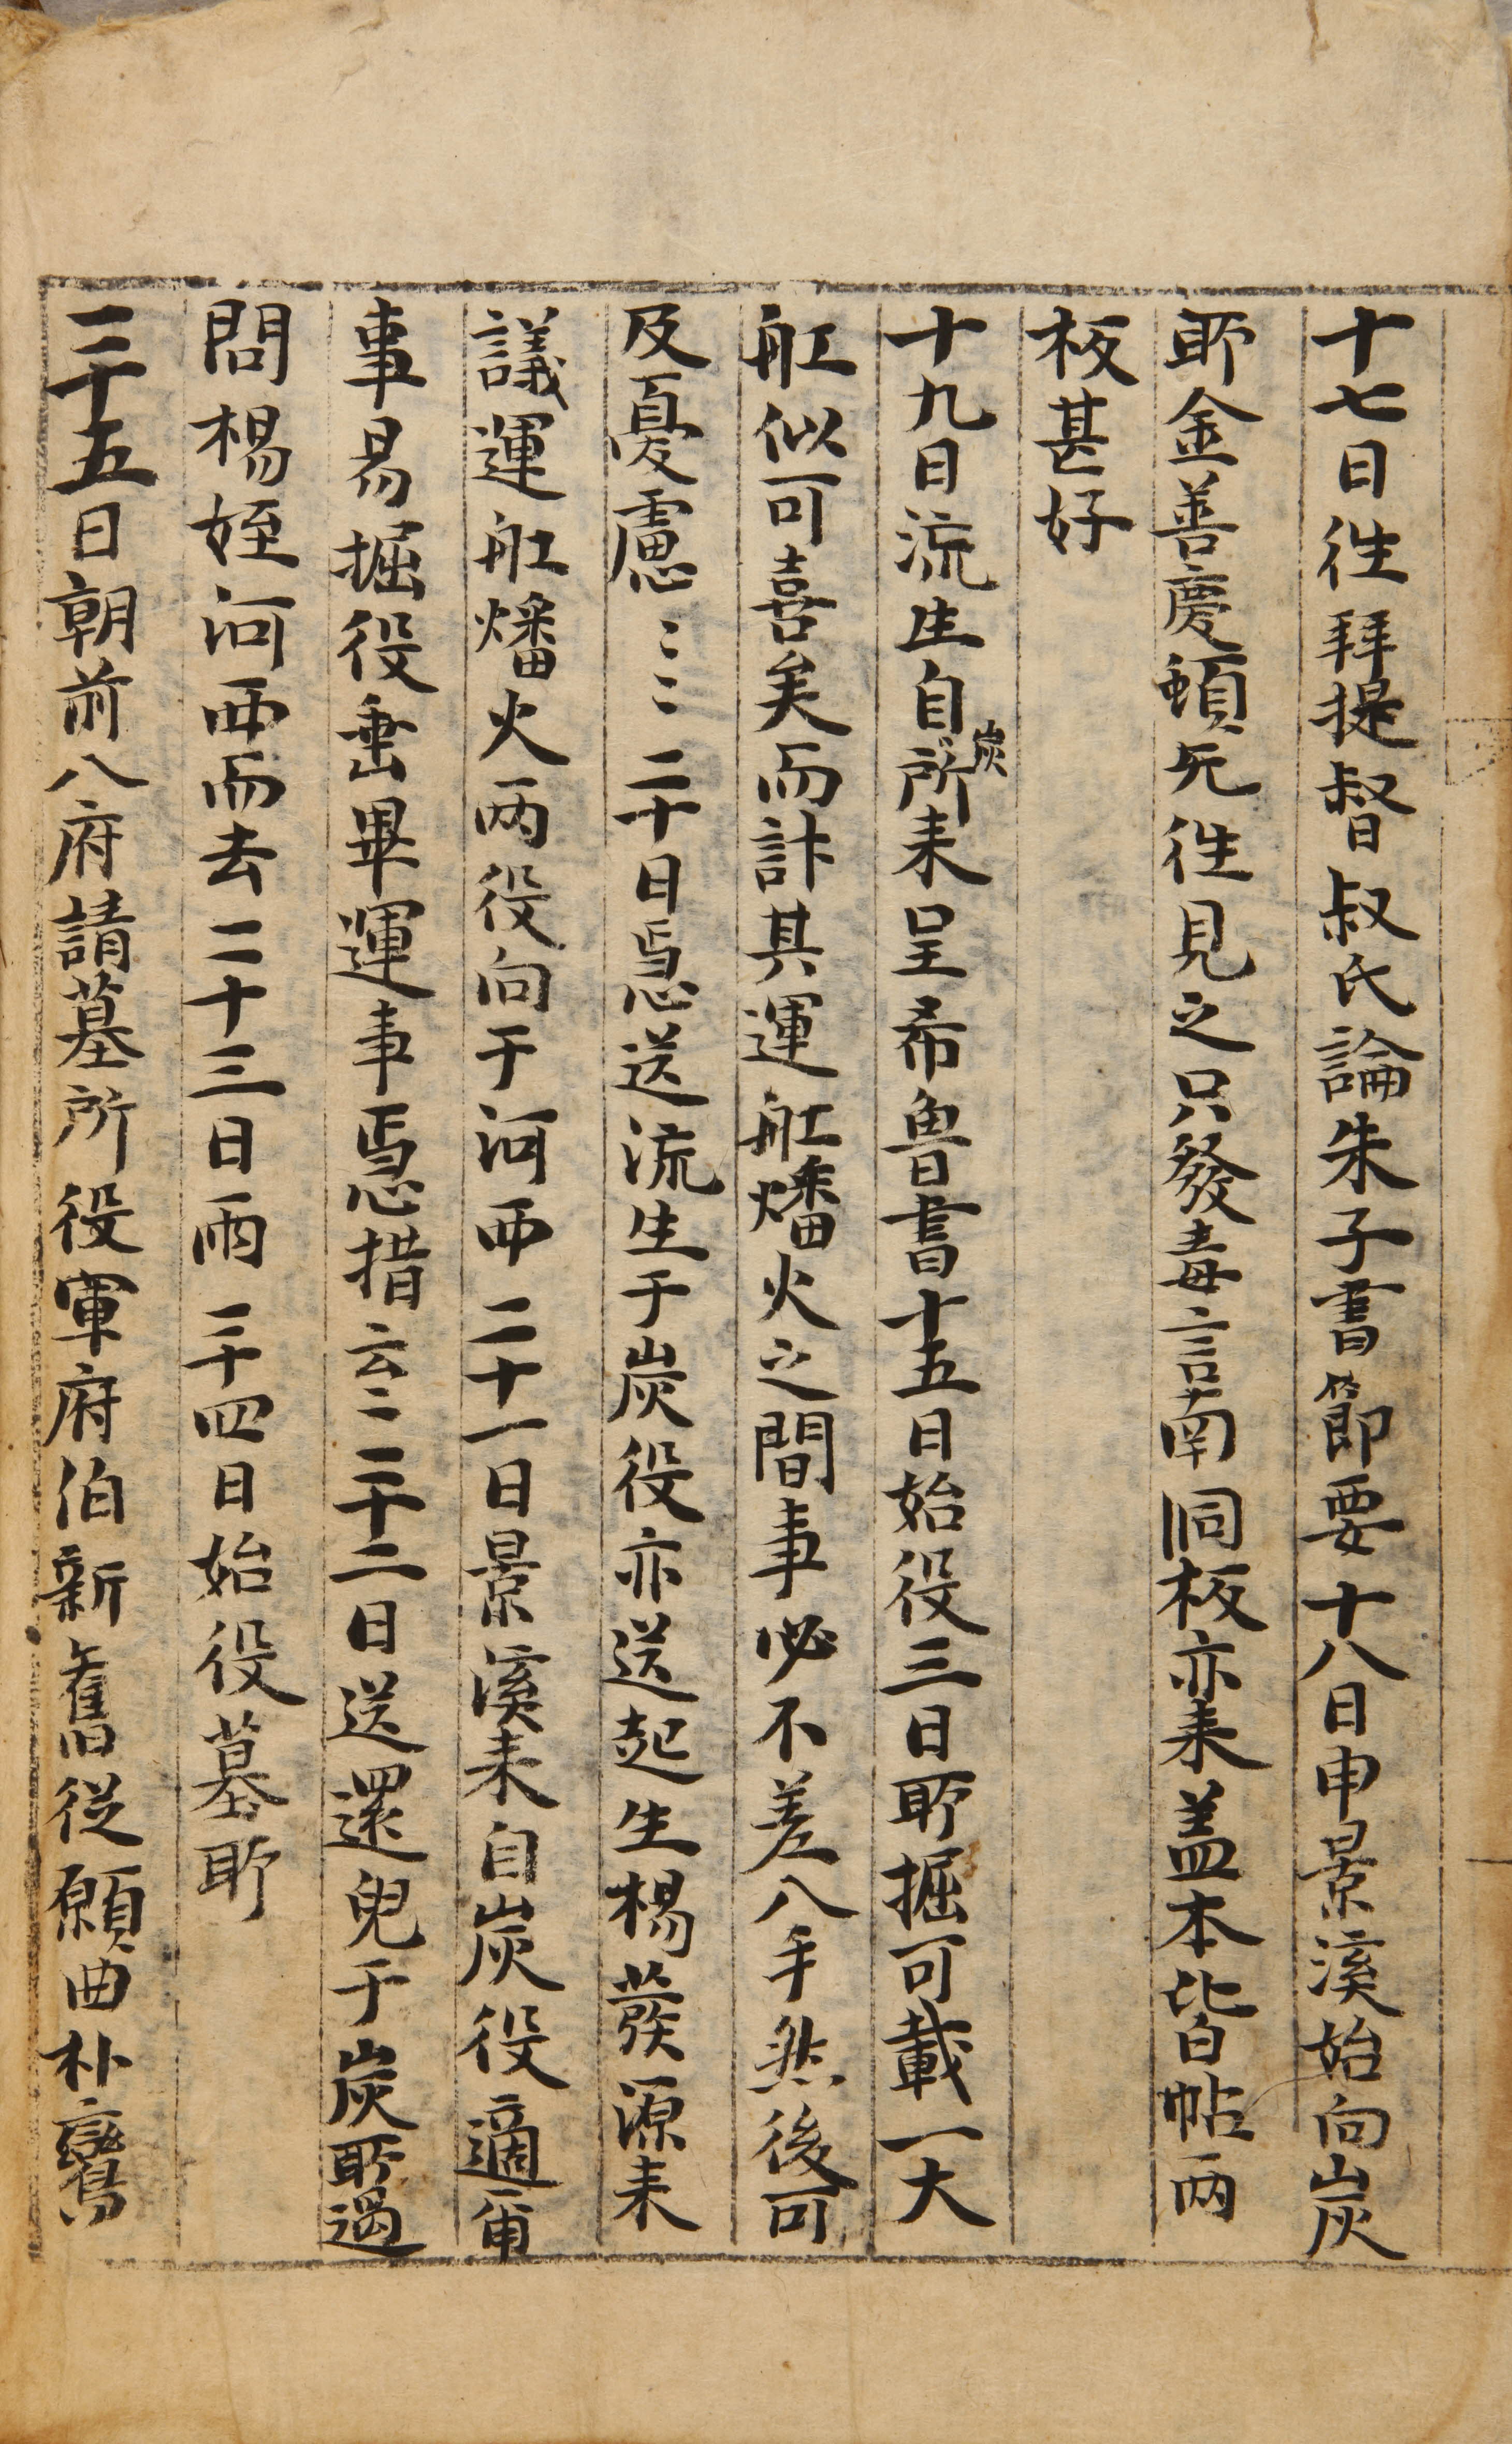 十七日徃拜提督叔氏論朱子書節要 十八日申景溪始向炭
所金善慶頓死徃見之只發毒言南同板亦来盖本皆白帖兩
板甚好
十九日流生自炭所来呈希魯書十五日始役三日所掘可載一大
舡似可喜矣而計其運舡燔火之間事必不差八手然後可
及憂慮〻〻 二十日馬送流生于炭役亦送起生楊蕟源来
議運舡燔火兩役向于河西 二十一日景溪来自炭役適甯
事易掘役垂畢運事焉措云〻 二十二日送還皃于炭所過
問楊姪河西而去 二十三日雨 二十四日始役墓所
二十五日朝前八府請墓所役軍府伯新舊從願曲朴鸞